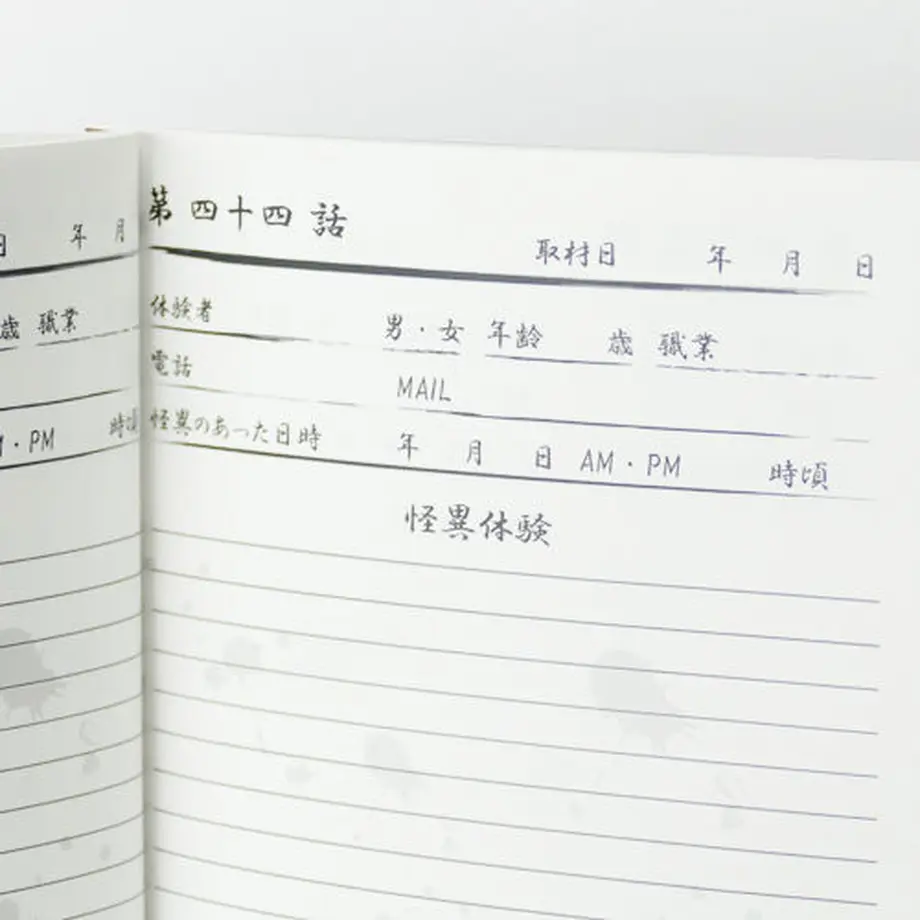 第四十四話
取材日 年 月 日
体験者 男・女 年齢 歳 職業
電話 MAIL
怪異のあった日時 年 月 日 AM・PM 時頃
怪異体験
日 年 月
歳 職業
M・PM 時頃